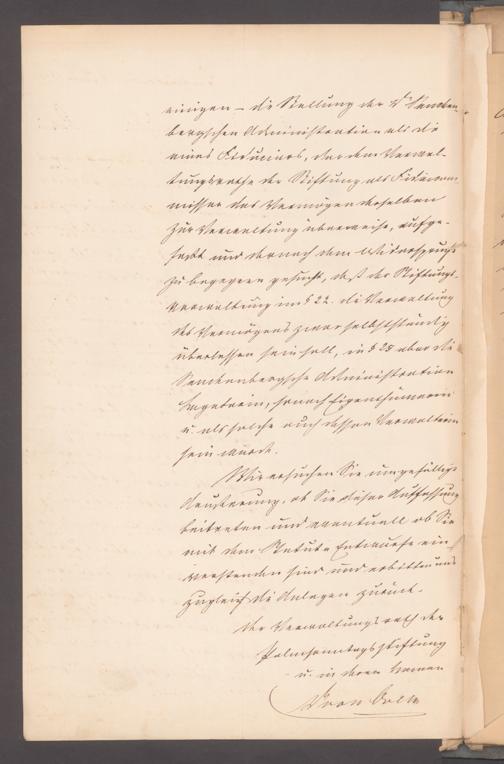 einigen – die Stellung der Dr. Sencken-
bergschen Administration als die
eines Fiduciars, der dem Verwal-
tungsrathe der Stiftung als Fideicom-
missar das Vermögen derselben
zur Verwaltung überweise, aufge-
faßt und demnach dem Widerspruche
zu begegnen gesucht, daß der Stiftungs-
verwaltung im § 22. die Verwaltung
des Vermögens zwar selbstständig
überlassen sein soll, in § 28 aber die
Senckenbergsche Administration
Eigenthümerin
u. als solche auch dessen Verwalterin
sein würde.
Wir ersuchen Sie um gefällige
Aeußerung, ob Sie dieser Auffassung
beitreten und eventuell ob Sie
mit dem Statuten Entwurfe ein-
verstanden sind und erbitten uns
zugleich die Anlagen zurück.
Der Verwaltungsrath der
Stiftung
u. in deren Namen